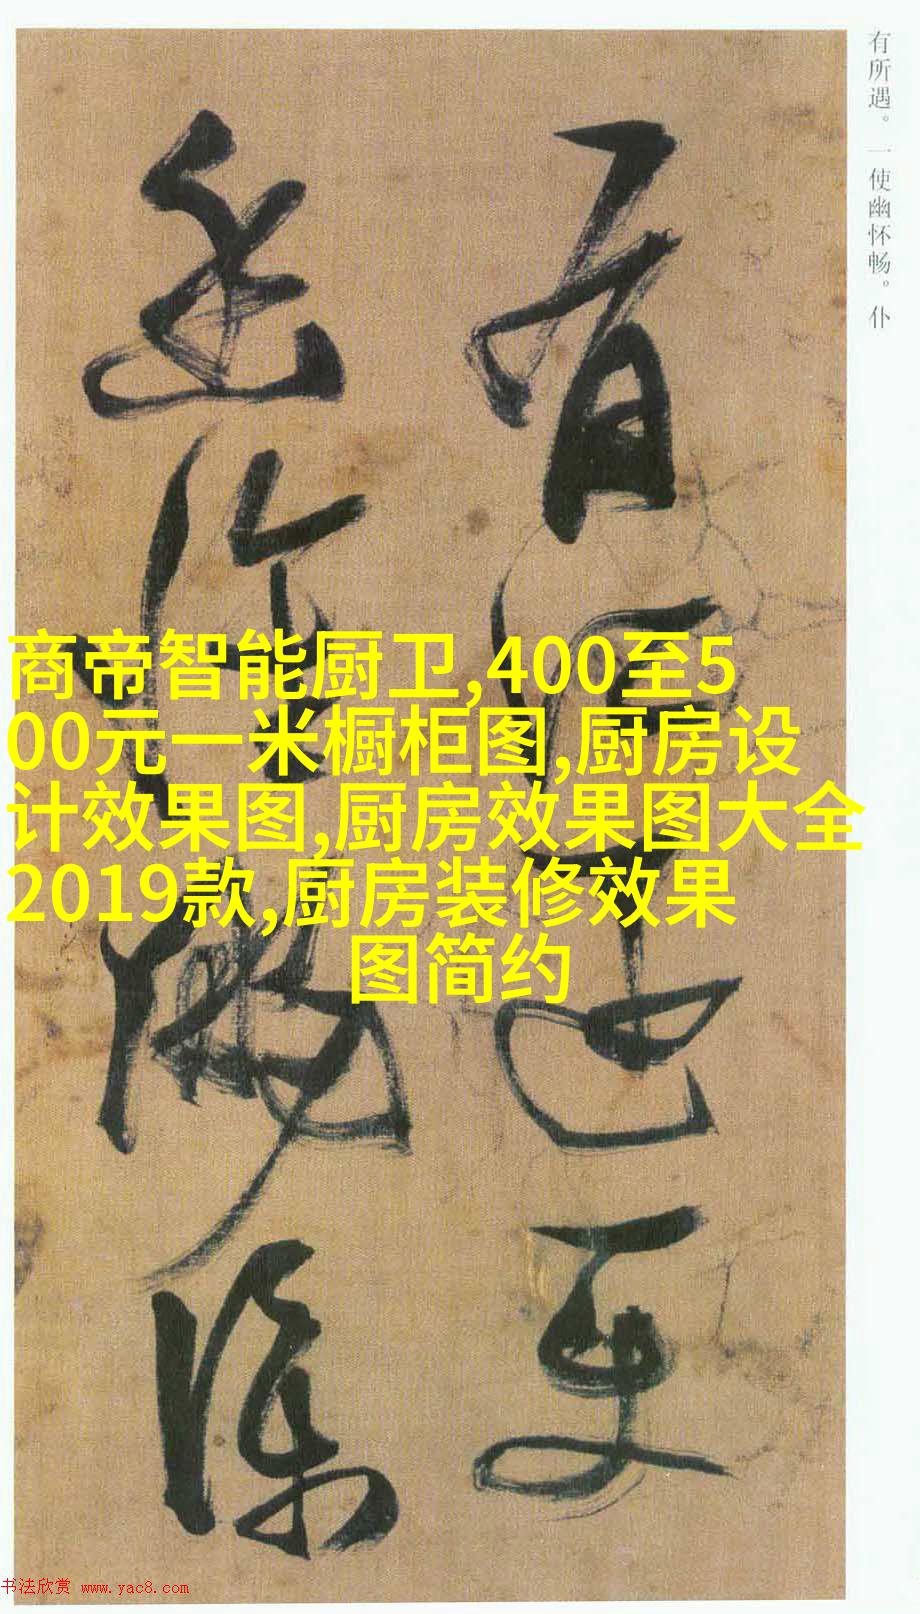 有所遇。一使幽怀畅。仆
有所遇一使
幽怀畅仆
商帝智能厨卫,400至5
00元一米橱柜图,厨房设
计效果图,厨房效果图大全
2019款,厨房装修效果
图简约
书法欣赏 www.yac8.com